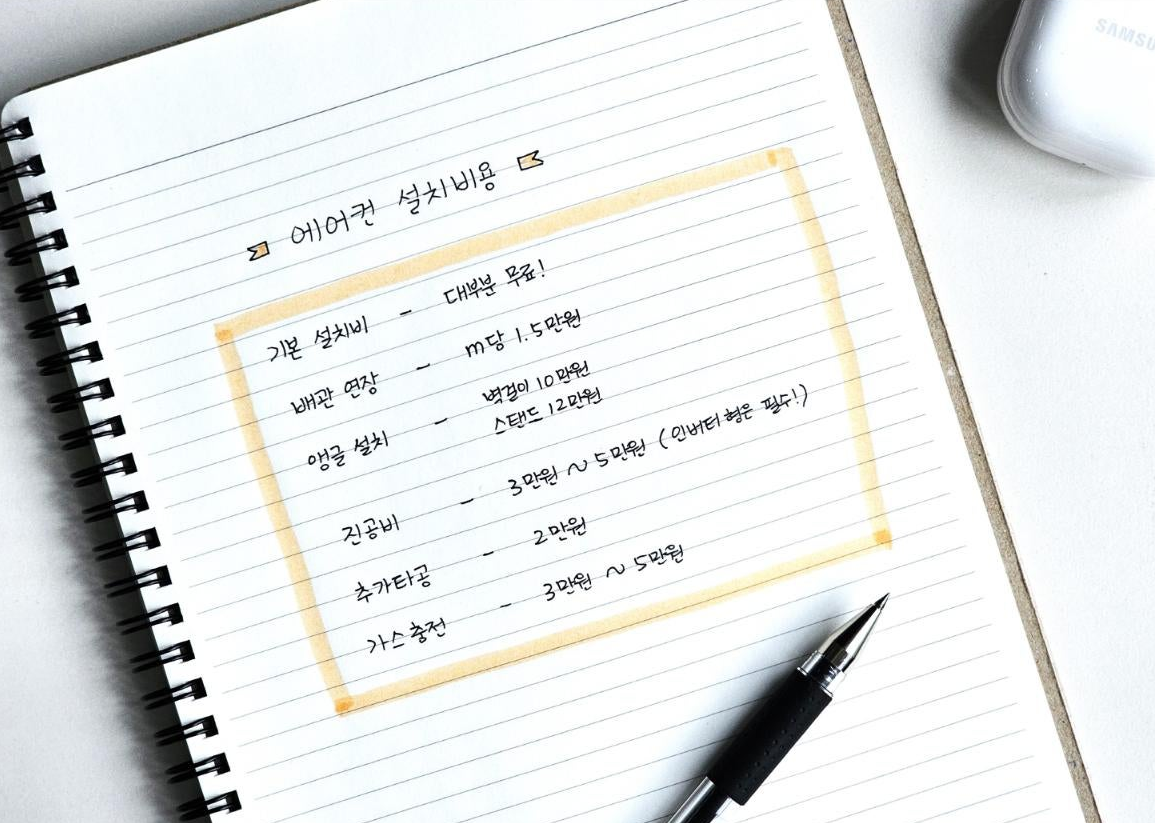 에어컨 설치비용
기본 설치비 - 대부분 무료!
배관 연장 - m당 1.5만원
앵글 설치 - 벽걸이 10만원
스탠드 12만원
진공비 - 3만원 ~ 5만원 (인버터형은 필수!)
추가타공 - 2만원
가스충전 - 3만원 ~ 5만원